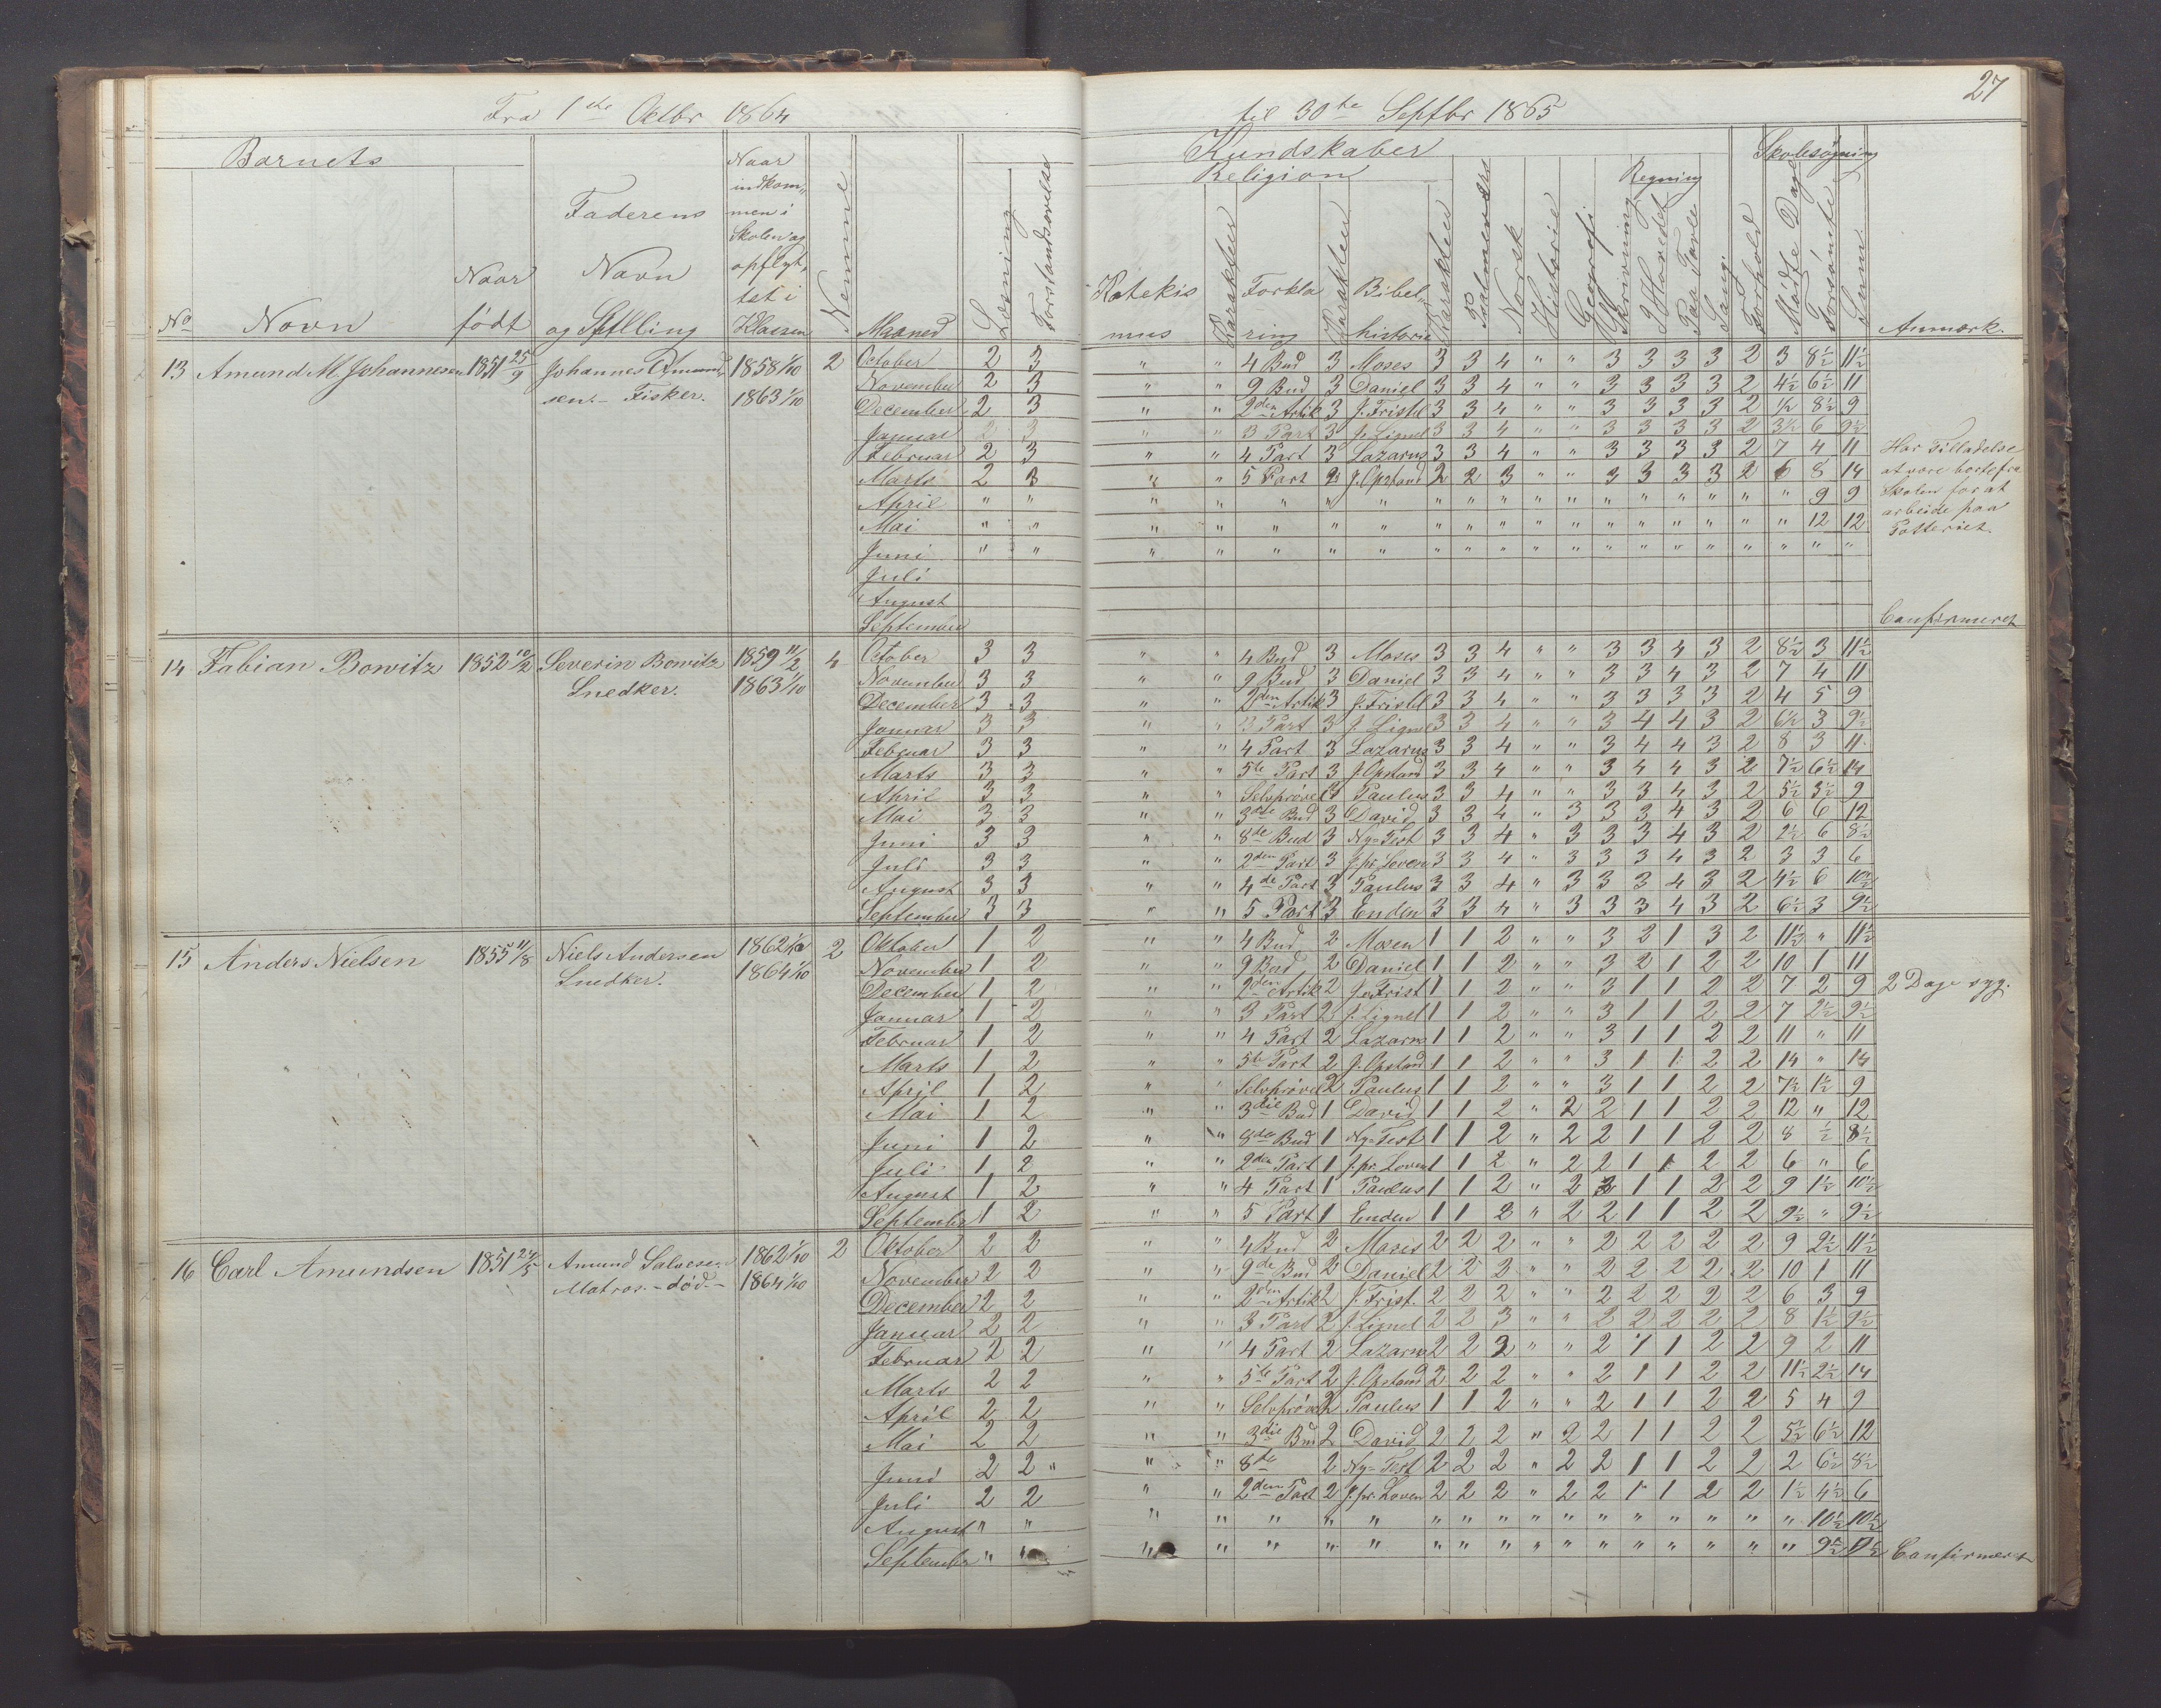 27
Fra 1ste Octbr 1864 til 30te Septbr 1865
Barnets Kundskaber Skolesøgning
Religion Regning
No Navn Naar født Faderens Navn og Stilling Naar indkommen i Skolen og opflyttet i Klassen Nemme Maaned Læsning Forstandsøvelse Katekismus Karakter Forklaring Karakter Bibelhistorie Karakter Psalmevers Norsk Historie Geografi Skrivning I Hovedet Paa Tavle Sang Forhold Mødte Dage Forsømte Suma Anmærk.
13 Amund M. Johannesen 1851 25/9 Johannes Amundsen. - Fisker. 1858 1/10 1863 1/10 2
October 2 3 " " 4 Bud 3 Moses 3 3 4 " " 3 3 3 3 2 3 8½ 11½
November 2 3 " " 9 Bud 3 Daniel 3 3 4 " " 3 3 3 3 2 4½ 6½ 11
December 2 3 " " 2den Artik 3 J. Fristel 3 3 4 " " 3 3 3 3 2 ½ 8½ 9
Januar 2 3 " " 3 Part 3 J. Lignel 3 3 4 " " 3 3 3 3 2 3½ 6 9½
Februar 2 3 " " 4 Part 3 Lazarus 3 3 4 " " 3 3 3 3 2 7 4 11
Marts 2 3 " " 5 Part 2 J. Opstand 2 2 3 " " 3 3 3 3 2 6 8 14
April " " " " " " " " " " " " " " " " " " " 9 9
Mai " " " " " " " " " " " " " " " " " " " 12 12
Juni " " " " " " " " " " " " " " " " " " " " "
Juli
August
September
Har Tilladelse
at være borte fra
Skolen for at
arbeide paa
Potteriet.
Confirmeret
14 Fabian Bowitz 1852 10/2 Severin Bowitz Snedker. 1859 11/2 1863 1/10 4
October 3 3 " " 4 Bud 3 Moses 3 3 4 " " 3 3 4 3 2 8½ 3 11½
November 3 3 " " 9 Bud 3 Daniel 3 3 4 " " 3 3 4 3 2 7 4 11
December 3 3 " " 2den Artik 3 J. Fristel 3 3 4 " " 3 3 3 3 2 4 5 9
Januar 3 3 " " 3 Part 3 J. Lignel 3 3 4 " " 3 4 4 3 2 6½ 3 9½
Februar 3 3 " " 4 Part 3 Lazarus 3 3 4 " " 3 4 4 3 2 8 3 11
Marts 3 3 " " 5te Part 3 J. Opstand 3 3 4 " " 3 4 4 3 2 7½ 6½ 14
April 3 3 " " Selvprøvel 3 Paulus 3 3 4 " " 3 3 4 3 2 5½ 3½ 9
Mai 3 3 " " 3die Bud 3 David 3 3 4 " 3 3 3 4 3 2 6 6 12
Juni 3 3 " " 8de Bud 3 Ny-Test 3 3 4 " 3 3 3 4 3 2 2½ 6 8½
Juli 3 3 " " 2den Part 3 J. pr. Loven 3 3 4 " 3 3 3 4 3 2 3 3 6
August 3 3 " " 4de Part 3 Paulus 3 3 4 " 3 3 3 4 3 2 4½ 6 10½
September 3 3 " " 5 Part 3 Enden 3 3 4 " 3 3 3 4 3 2 6½ 3 9½
15 Anders Nielsen 1855 11/8 Niels Andersen Snedker. 1862 1/10 1864 1/10 2
Oktober 1 2 " " 4 Bud 2 Mosen 1 1 2 " " 3 2 1 3 2 11½ " 11½
November 1 2 " " 9 Bud 2 Daniel 1 1 2 " " 3 2 1 2 2 10 1 11
December 1 2 " " 2den Artik 2 J. Frist 1 1 2 " " 3 1 1 2 2 7 2 9 2 Dage syg.
Januar 1 2 " " 3 Part 2 J. Lignel 1 1 2 " " 3 1 1 2 2 7 2½ 9½
Februar 1 2 " " 4 Part 2 Lazarus 1 1 2 " " 3 1 1 2 2 11 " 11
Marts 1 2 " " 5te Part 2 J. Opstand 1 1 2 " " 3 1 1 2 2 14 " 14
April 1 2 " " Selvprøvel 2 Paulus 1 1 2 " " 3 1 1 2 2 7½ 1½ 9
Mai 1 2 " " 3die Bud 1 David 1 1 2 " 2 2 1 1 2 2 12 " 12
Juni 1 2 " " 8de Bud 1 Ny-Test 1 1 2 " 2 2 1 1 2 2 8 ½ 8½
Juli 1 2 " " 2den Part 1 J. pr. Loven 1 1 2 " 2 2 1 1 2 2 6 " 6
August 1 2 " " 4 Part 1 Paulus 1 1 2 " 2 2 1 1 2 2 9 1½ 10½
September 1 2 " " 5 Part 1 Enden 1 1 2 " 2 2 1 1 2 2 9½ " 9½
16 Carl Amundsen 1851 24/5 Amund Salvesen Matros. - død - 1862 1/10 1864 1/10 2
Oktober 2 2 " " 4 Bud 2 Moses 2 2 2 " " 2 2 2 2 2 9 2½ 11½
November 2 2 " " 9de Bud 2 Daniel 2 2 2 " " 2 2 2 2 2 10 1 11
December 2 2 " " 2den Artik 2 J. Frist. 2 2 2 " " 2 2 2 2 2 6 3 9
Januar 2 2 " " 3 Part 2 J. Lignel 2 2 3 " " 2 2 2 2 2 8 1½ 9½
Februar 2 2 " " 4 Part 2 Lazarus 2 2 2 " " 2 1 1 2 2 9 2 11
Marts 2 2 " " 5te Part 2 J. Opstand 2 2 2 " " 2 1 1 2 2 11½ 2½ 14
April 2 2 " " Selvprøvel 2 Paulus 1 1 2 " " 2 1 1 2 2 5 4 9
Mai 2 2 " " 3die Bud 2 David 2 2 2 " 2 2 1 1 2 2 5½ 6½ 12
Juni 2 2 " " " 8de 2 Ny-Test 2 2 2 " 2 2 1 1 2 2 2 6½ 8½
Juli 2 2 " " 2den Part 2 J. pr. Loven 2 2 2 " 2 2 1 1 2 2 1½ 4½ 6
August " " " " " " " " " " " " " " " " " " " 10½ 10½
September " " " " " " " " " " " " " " " " " " " 9½ 9½ Confirmeret